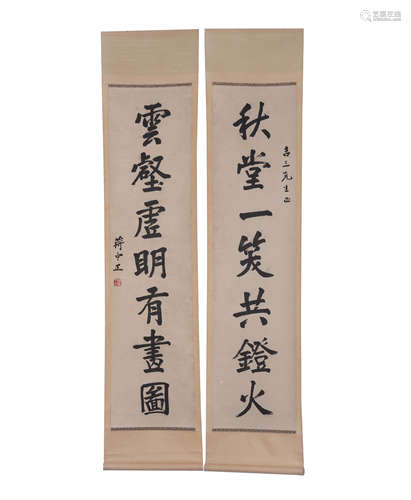 吉三先生正
秋堂一笑共鐙火
雲壑虛明有畫圖
蔣中正